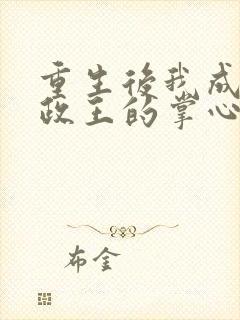 重生後我成
政王的掌心
布金